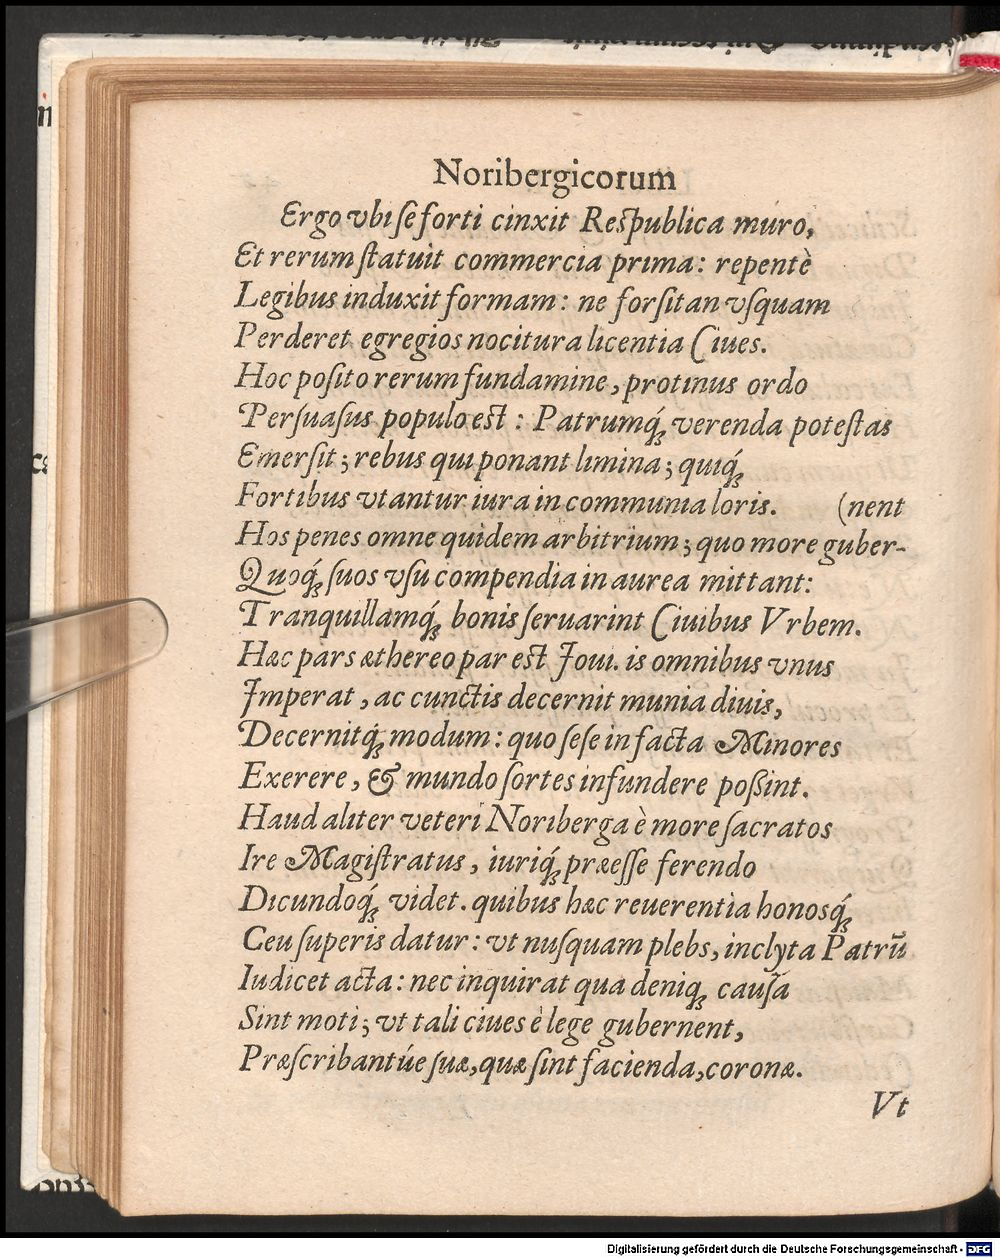 Noribergicorum
Ergo vbi ſe forti cinxit Reſpublica muro,
Et rerum ſtatuit commercia prima: repentè
Legibus induxit formam: ne forſitan vſquam
Perderet egregios nocitura licentia Ciues.
Hoc poſito rerum fundamine, protinus ordo
Perſuaſus populo eſt: Patrumq́ꝫ verenda poteſtas
Emerſit; rebus qui ponant limina; quiq́ꝫ
Fortibus vtantur iura in communia loris. (nent
Hos penes omne quidem arbitrium; quo more guber-
Quoq́ꝫ ſuos vſu compendia in aurea mittant:
Tranquillamq́ꝫ bonis ſeruarint Ciuibus Vrbem.
Hæc pars æthereo par eſt Ioui. is omnibus vnus
Imperat, ac cunctis decernit munia diuis,
Decernitq́ꝫ modum: quo ſeſe in facta Minores
Exerere, & mundo ſortes infundere poßint.
Haud aliter veteri Noriberga è more ſacratos
Ire Magiſtratus, iuriq́ꝫ præeſſe ferendo
Dicundoq́ꝫ videt. quibus hæc reuerentia honosq́ꝫ
Ceu ſuperis datur: vt nuſquam plebs, inclyta Patrū
Iudicet acta: nec inquirat qua deniqꝫ cauſa
Sint moti; vt tali ciues è lege gubernent,
Præſcribantúe ſuæ, quæ ſint facienda, coronæ.
Vt
Digitalisierung gefördert durch die Deutsche Forschungsgemeinschaft - DFG